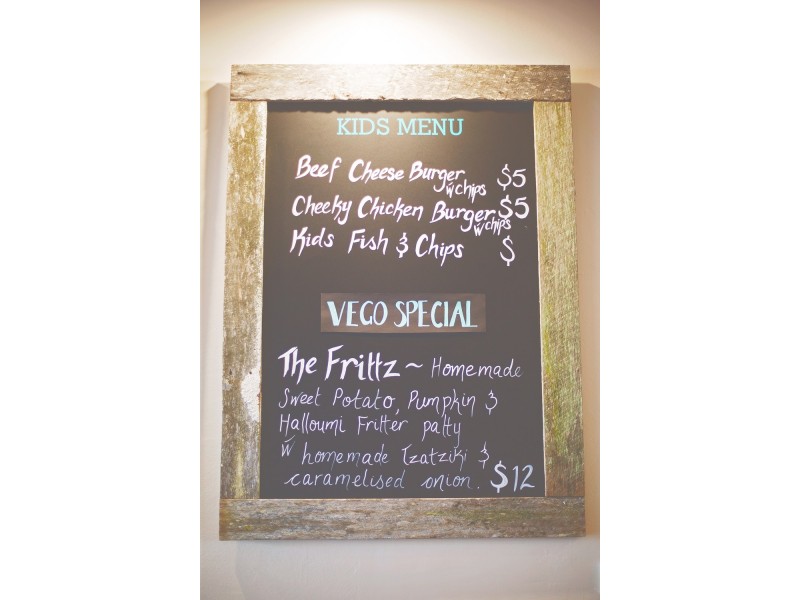 KIDS MENU
Beef Cheese Burger w chips $5
Cheeky Chicken Burger w chips $5
Kids Fish & Chips $
VEGO SPECIAL
The Frittz ~ Homemade
Sweet Potato, Pumpkin &
Halloumi Fritter patty
w homemade Tzatziki &
caramelised onion. $12